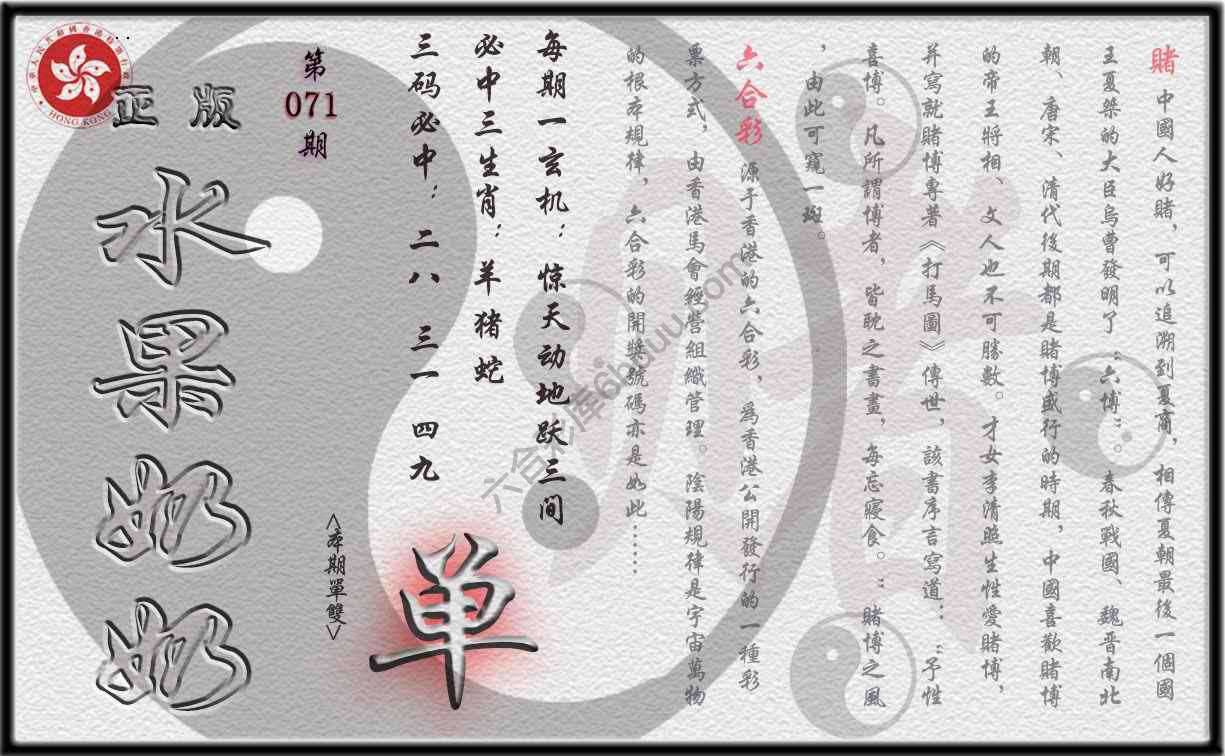 賭 中國人好賭，可以追溯到夏商，相傳夏朝最後一個國
王夏桀的大臣烏曹發明了“六博”。春秋戰國、魏晋南北
朝、唐宋、清代後期都是賭博盛行的時期，中國喜歡賭博
的帝王將相、文人也不可勝數。才女李清照生性愛賭博，
并寫就賭博專著《打馬圖》傳世，該書序言寫道：“予性
喜博。凡所謂博者，皆耽之書畫，每忘寢食。”賭博之風
，由此可窺一斑。
六合彩 源于香港的六合彩，爲香港公開發行的一種彩
票方式，由香港馬會經營組織管理。陰陽規律是宇宙萬物
的根本規律，六合彩的開獎號碼亦是如此……
每期一玄机：惊天动地跃三间
必中三生肖：羊猪蛇
三码必中：二八 三一 四九
单
<本期單雙>
第
071
期
正版
水果奶奶
HONG KONG
六合彩库6hduu.com